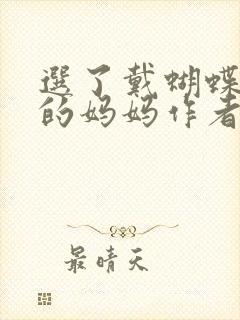 選了戴蝴蝶
的妈妈作者
最晴天